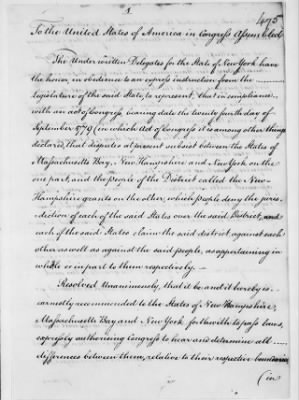 1.
475
To the United States of America in Congress Assembled
The Underwritten Delegates for the State of New York have
the honor, in obedience to an express instruction from the
Legislature of the said State, to represent, that in compliance
with an Act of Congress, bearing date the twenty fourth day of
September 1779 (in which Act of Congress it is among other things
declared, that disputes at present subsist between the States of
Massachusetts Bay, New Hampshire and New York on the
one part, and the people of the District called the New
Hampshire grants on the other, which people deny the juris-
diction of each of the said States over the said District, and
each of the said States claim the said district against each
other as well as against the said people, as appertaining in
whole or in part to them respectively. —
Resolved Unanimously, that it be and it hereby is
earnestly recommended to the States of New Hampshire,
Massachusetts Bay and New York forthwith to pass laws,
expressly authorising Congress to hear and determine all
differences between them, relative to their respective boundaries
(in